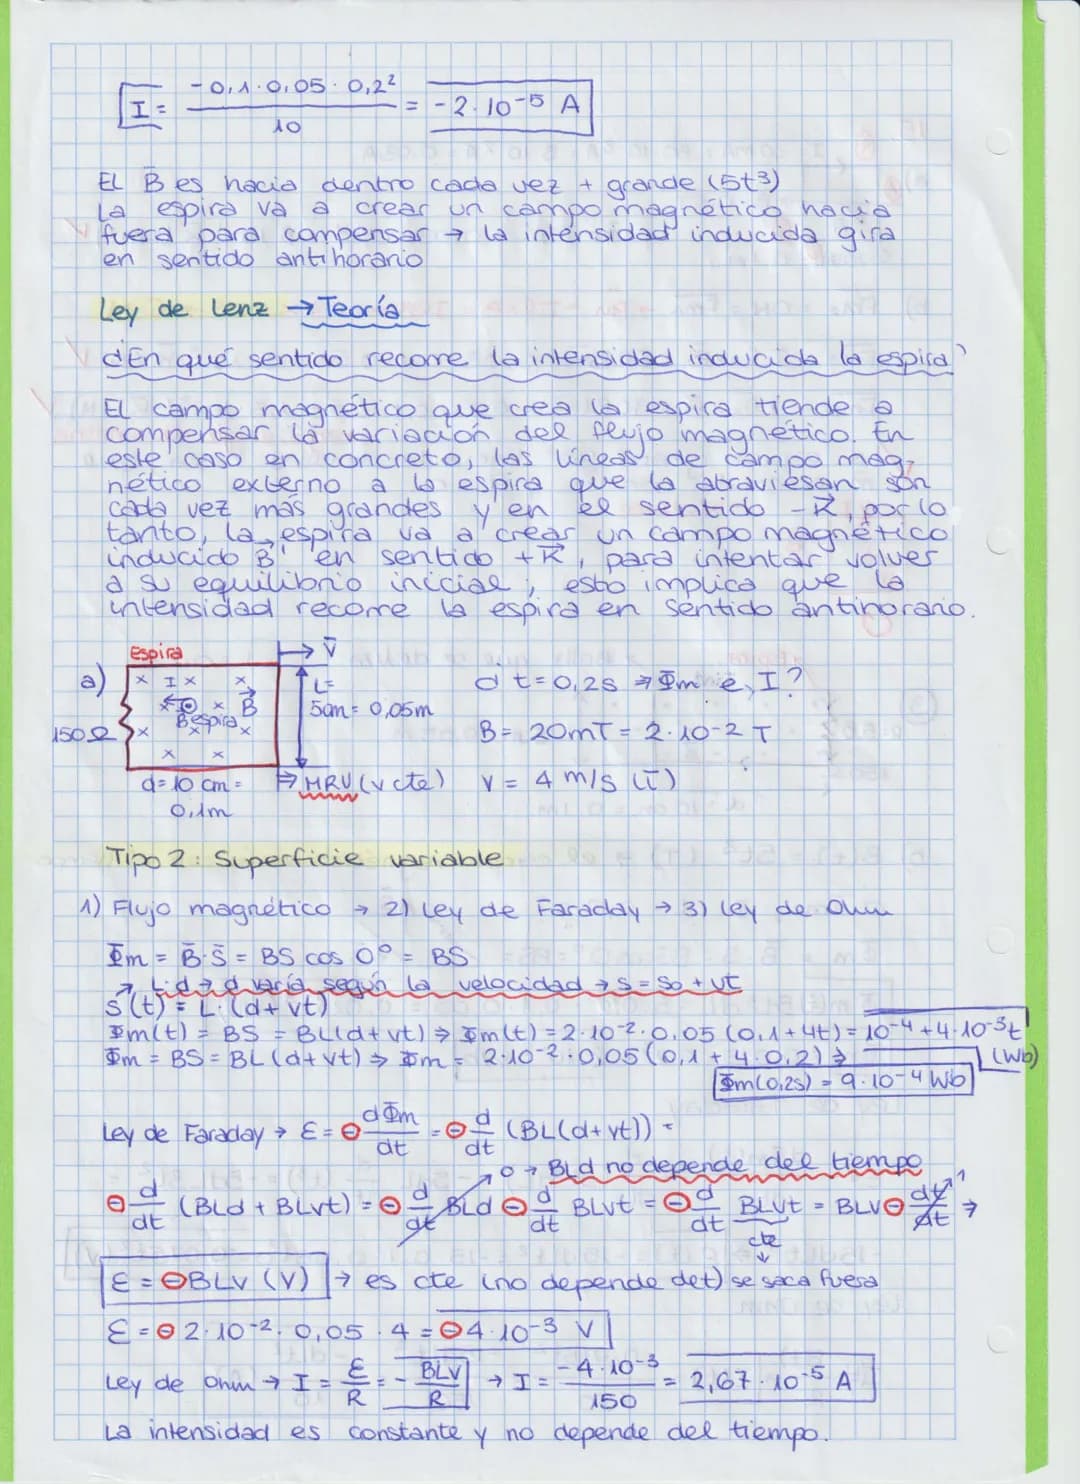 I = -0,1·0,05·0,2² / 10 = -2·10-5 A
EL B̄ es hacia dentro cada vez + grande (5t³)
La espira va a crear un campo magnético hacia
fuera para compensar → la intensidad inducida gira
en sentido antihorario
Ley de Lenz → Teoría
¿En qué sentido recorre la intensidad inducida la espira?
EL campo magnético que crea la espira tiende a
compensar la variación del flujo magnético. En
este caso en concreto, las líneas de campo mag-
nético externo a la espira que la atraviesan son
cada vez más grandes y en el sentido -K⃗, por lo
tanto, la espira va a crear un campo magnético
inducido B⃗' en sentido +K⃗, para intentar volver
a su equilibrio inicial; esto implica que la
intensidad recorre la espira en sentido antihorario.
a)
Espira
V̄
I
B⃗
Bespira
150Ω
L=
5cm = 0,05m
d=10 cm =
0,1m
⇒ MRU (v cte)
¿t=0,2s ⇒ Φm e I?
B = 20mT = 2·10-2 T
v = 4 m/s (ī)
Tipo 2: Superficie variable
1) Flujo magnético → 2) Ley de Faraday → 3) Ley de Ohm
Φm = B̄·S̄ = BS cos 0º = BS
↗ L·d → d varía según la velocidad → S = So + vt
S(t) = L·(d+vt)
Φm(t) = BS = BL(d+vt) ⇒ Φm(t) = 2·10-2·0,05 (0,1+4t) = 10-4 + 4·10-3t (Wb)
Φm = BS = BL (d+vt) ⇒ Φm = 2·10-2·0,05 (0,1 + 4·0,2) ⇒
Φm(0,2s) = 9·10-4 Wb
Ley de Faraday → ε = ⊖ dΦm/dt = ⊖ d/dt (BL(d+vt)) =
0 → BLd no depende del tiempo
⊖ d/dt (BLd + BLvt) = ⊖ d/dt BLd ⊖ d/dt BLvt = ⊖ d/dt BLvt = BLv ⊖ dt/dt 1 ⇒
cte
↓
ε = ⊖BLv (V) → es cte (no depende de t) se saca fuera
ε = ⊖ 2·10-2·0,05·4 = ⊖4·10-3 V
Ley de Ohm → I = ε/R = - BLV/R → I = -4·10-3/150 = 2,67·10-5 A
La intensidad es constante y no depende del tiempo.